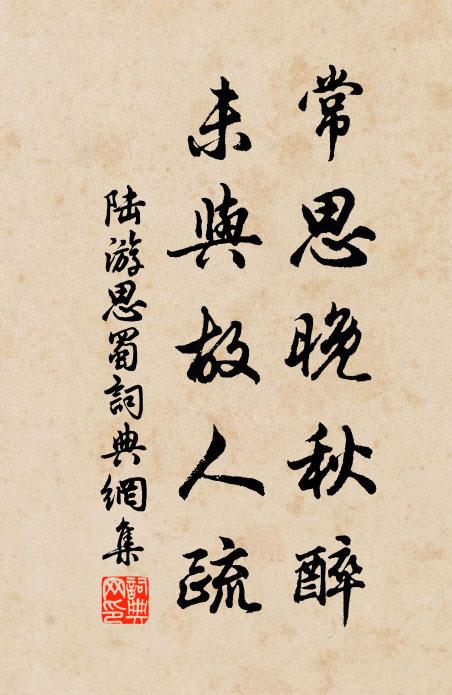 常思晚秋醉
未與故人疏
陸游思蜀詞典網集
詞典網印